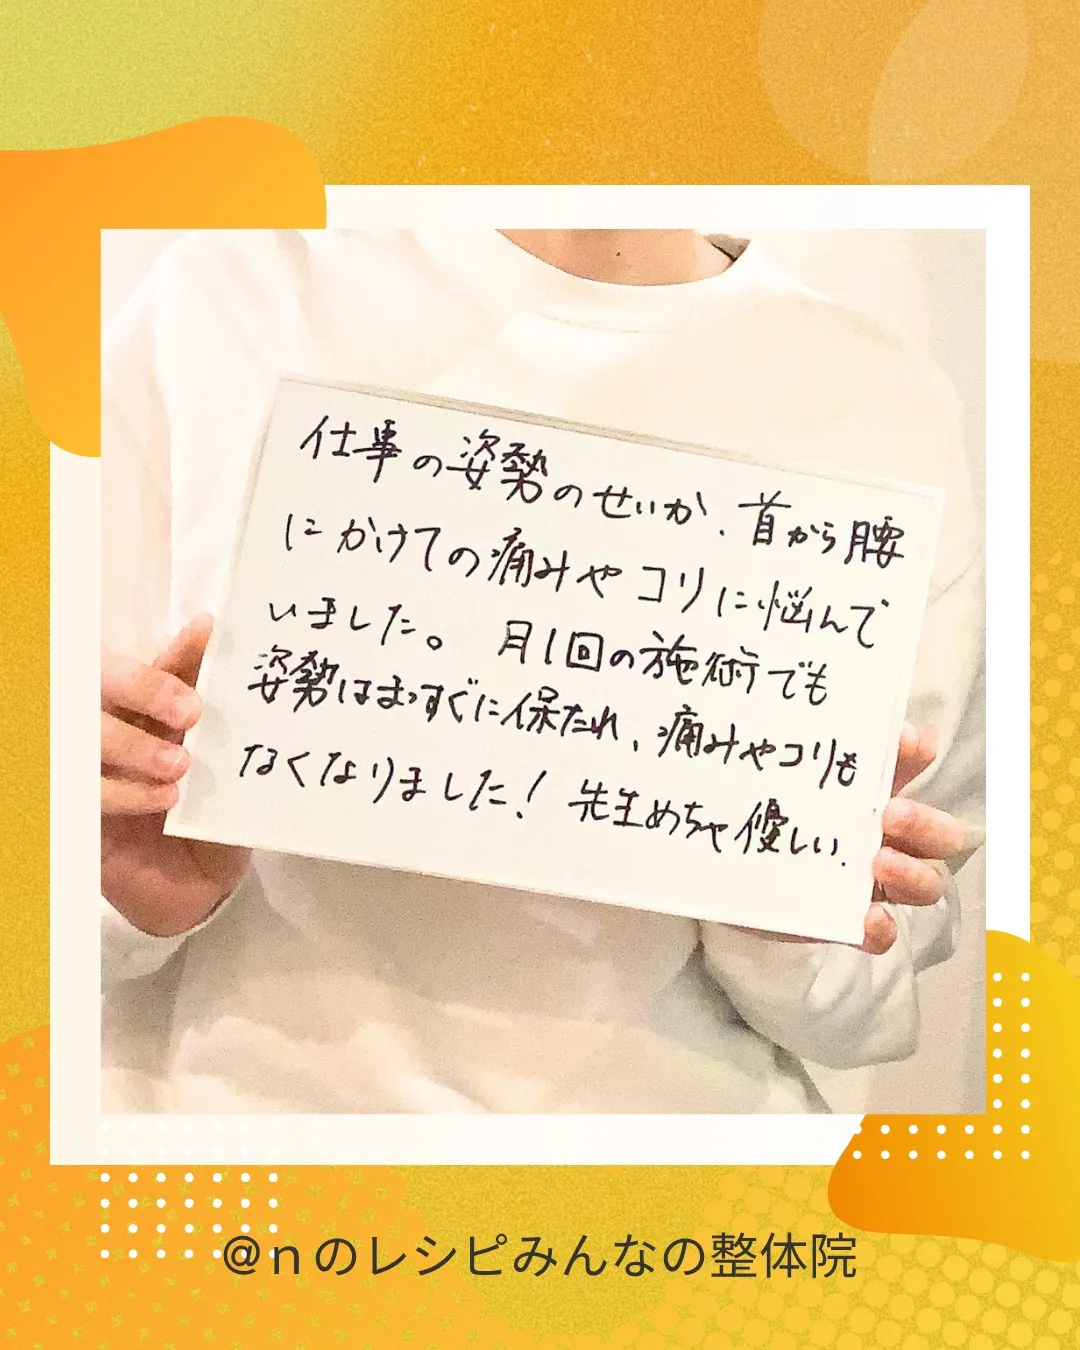 仕事の姿勢のせいか、首から腰
にかけての痛みやコリに悩んで
いました。 月1回の施術でも
姿勢はまっすぐに保たれ、痛みやコリも
なくなりました! 先生めちゃ優しい.
@nのレシピみんなの整体院